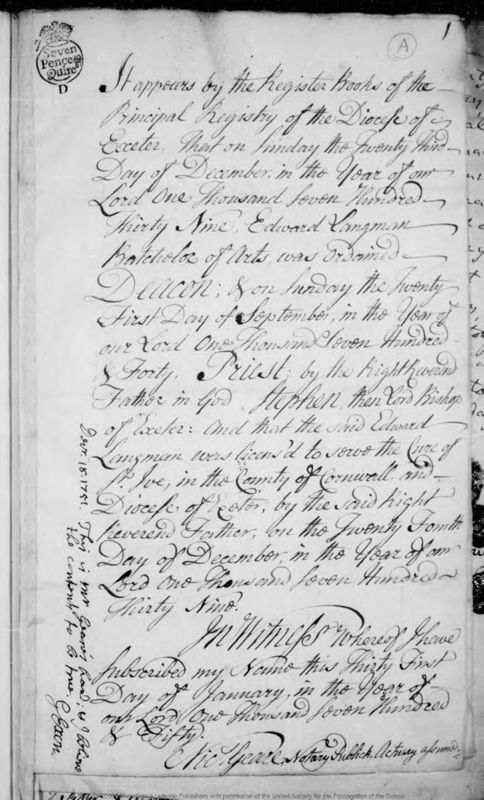 1
A
Seven
Pence
Quire
D
It appears by the Register Books of the
Principal Registry of the Diocese of
Exeter, that on Sunday the Twenty Third
Day of December, in the Year of our
Lord One Thousand Seven Hundred
Thirty Nine, Edward Langman
Batchelor of Arts, was Ordained
Deacon; & on Sunday the Twenty
First Day of September, in the Year of
our Lord One Thousand Seven Hundred
& Forty, Priest; by the Right Reverend
Father in God, Stephen, then Lord Bishop
of Exeter: And that the said Edward
Langman was licens'd to serve the Cure of
St. Ive, in the County of Cornwall and
Diocese of Exeter, by the said Right
Reverend Father, on the Twenty Fourth
Day of December, in the Year of our
Lord One Thousand Seven Hundred
Thirty Nine.
In Witness Whereof I have
subscribed my Name this Thirty First
Day of January, in the Year of
our Lord One Thousand Seven Hundred
& Fifty.
Nic. Geare, Notary Publick, Actuary assumed.
18. 1751. This is Mr Geare's hand; & I believe
the content to be true. G. Exon.
Academic Publishers with permission of the United Society for the Propagation of the Gospel